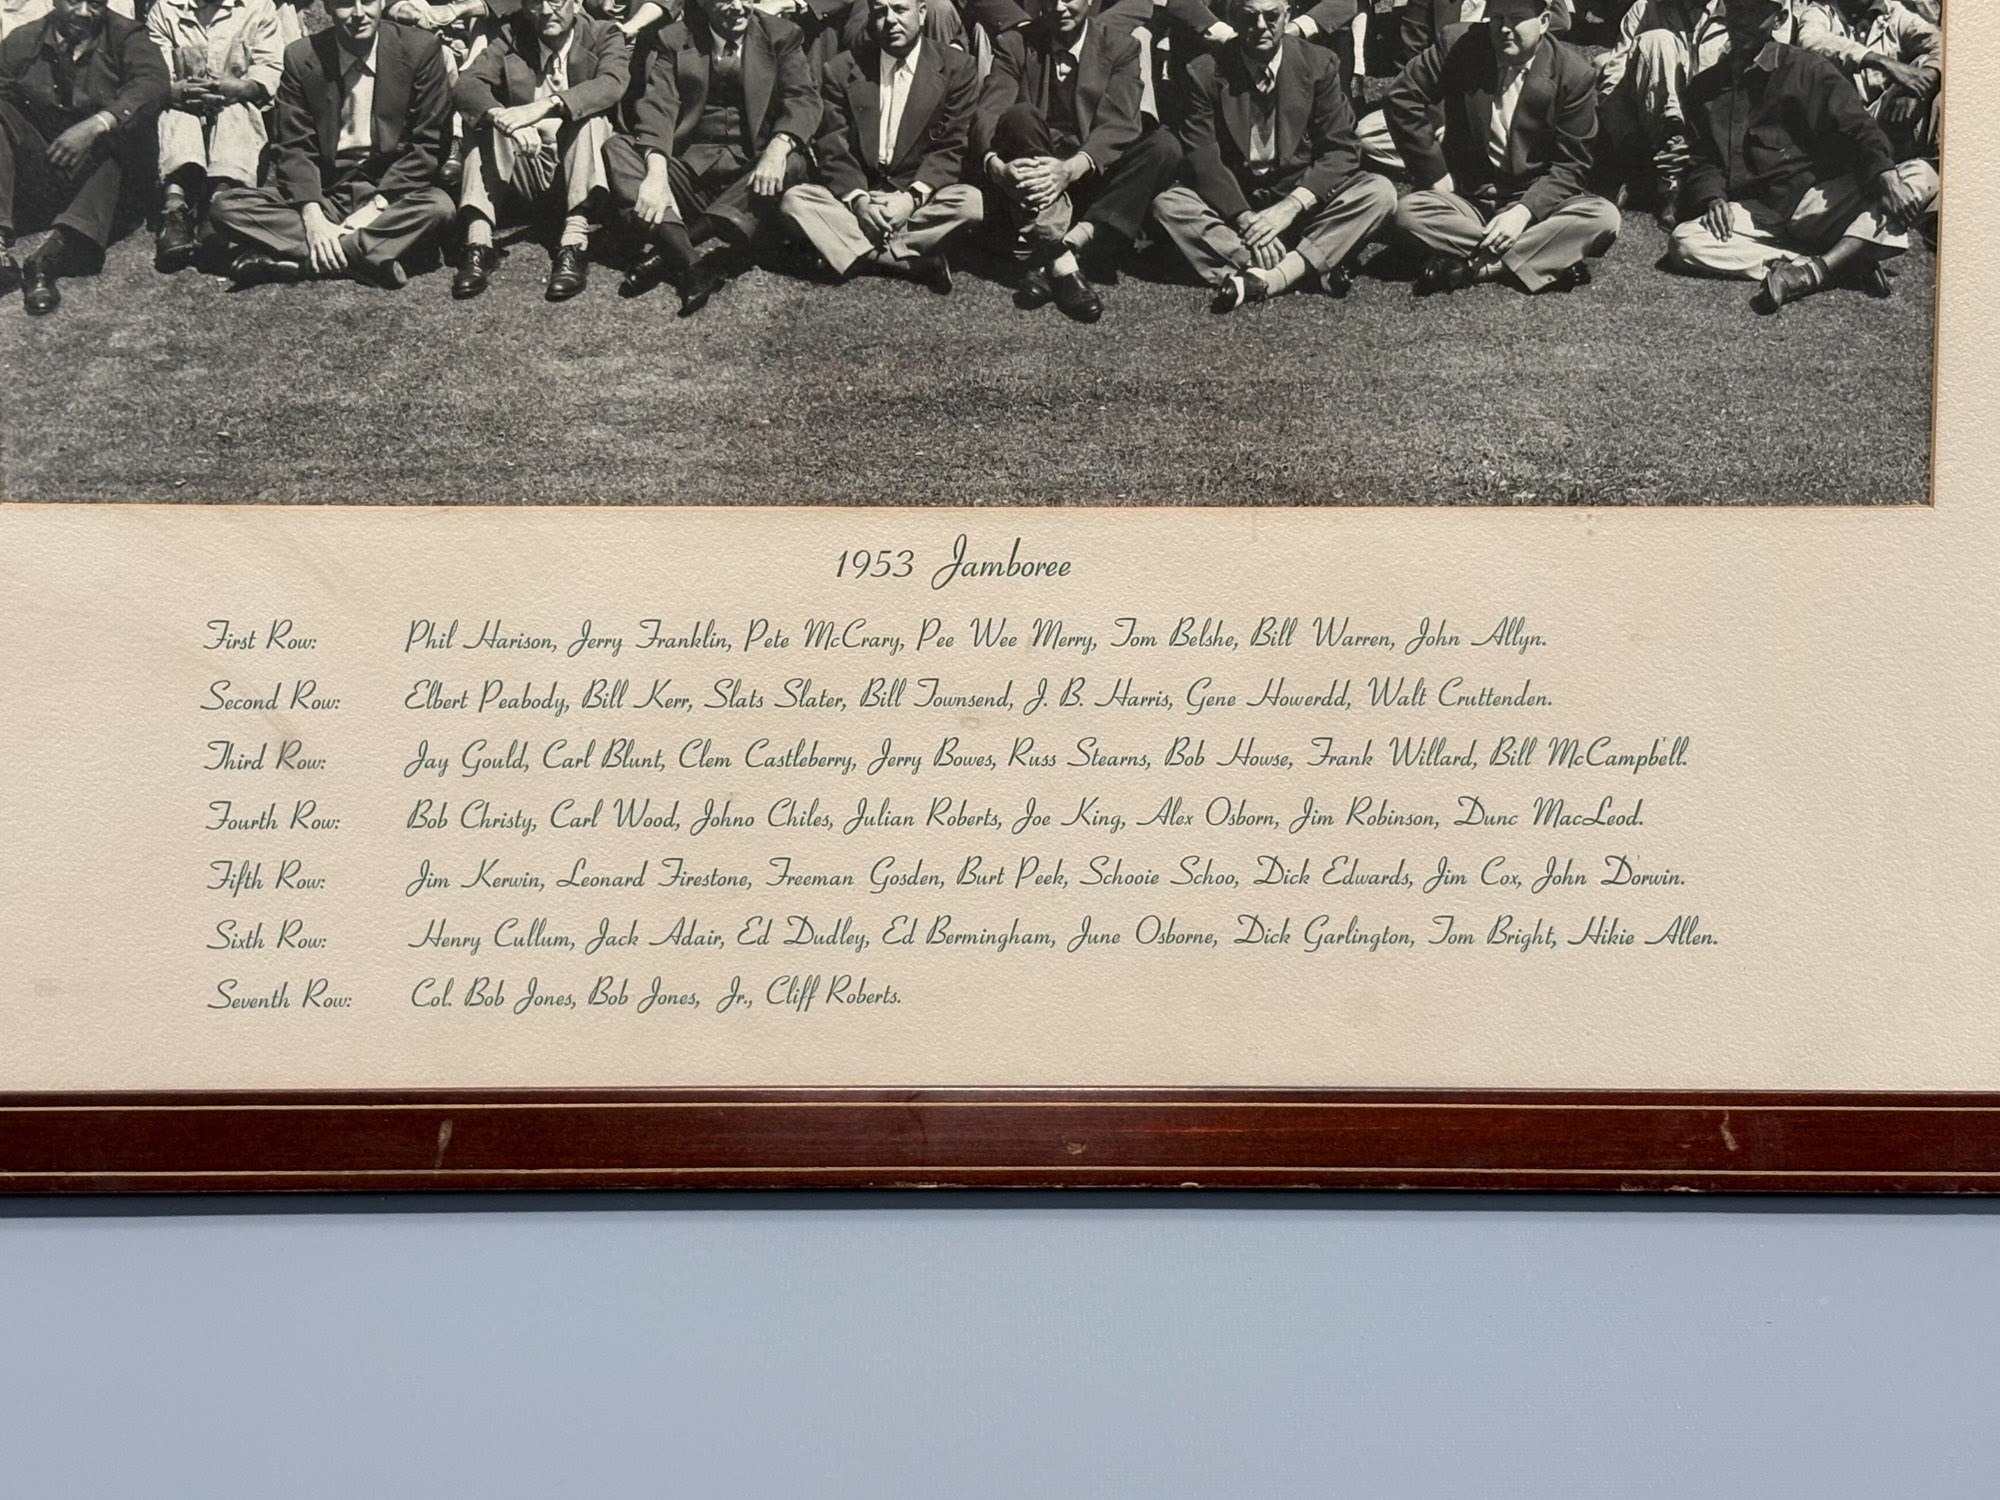 1953 Jamboree
First Row: Phil Harison, Jerry Franklin, Pete McCrary, Pee Wee Merry, Tom Belshe, Bill Warren, John Allyn.
Second Row: Elbert Peabody, Bill Kerr, Slats Slater, Bill Townsend, J. B. Harris, Gene Howerdd, Walt Cruttenden.
Third Row: Jay Gould, Carl Blunt, Clem Castleberry, Jerry Bowes, Russ Stearns, Bob Howse, Frank Willard, Bill McCampbell.
Fourth Row: Bob Christy, Carl Wood, Johno Chiles, Julian Roberts, Joe King, Alex Osborn, Jim Robinson, Dunc MacLeod.
Fifth Row: Jim Kerwin, Leonard Firestone, Freeman Gosden, Burt Peek, Schooie Schoo, Dick Edwards, Jim Cox, John Dorwin.
Sixth Row: Henry Cullum, Jack Adair, Ed Dudley, Ed Bermingham, June Osborne, Dick Garlington, Tom Bright, Hikie Allen.
Seventh Row: Col. Bob Jones, Bob Jones, Jr., Cliff Roberts.